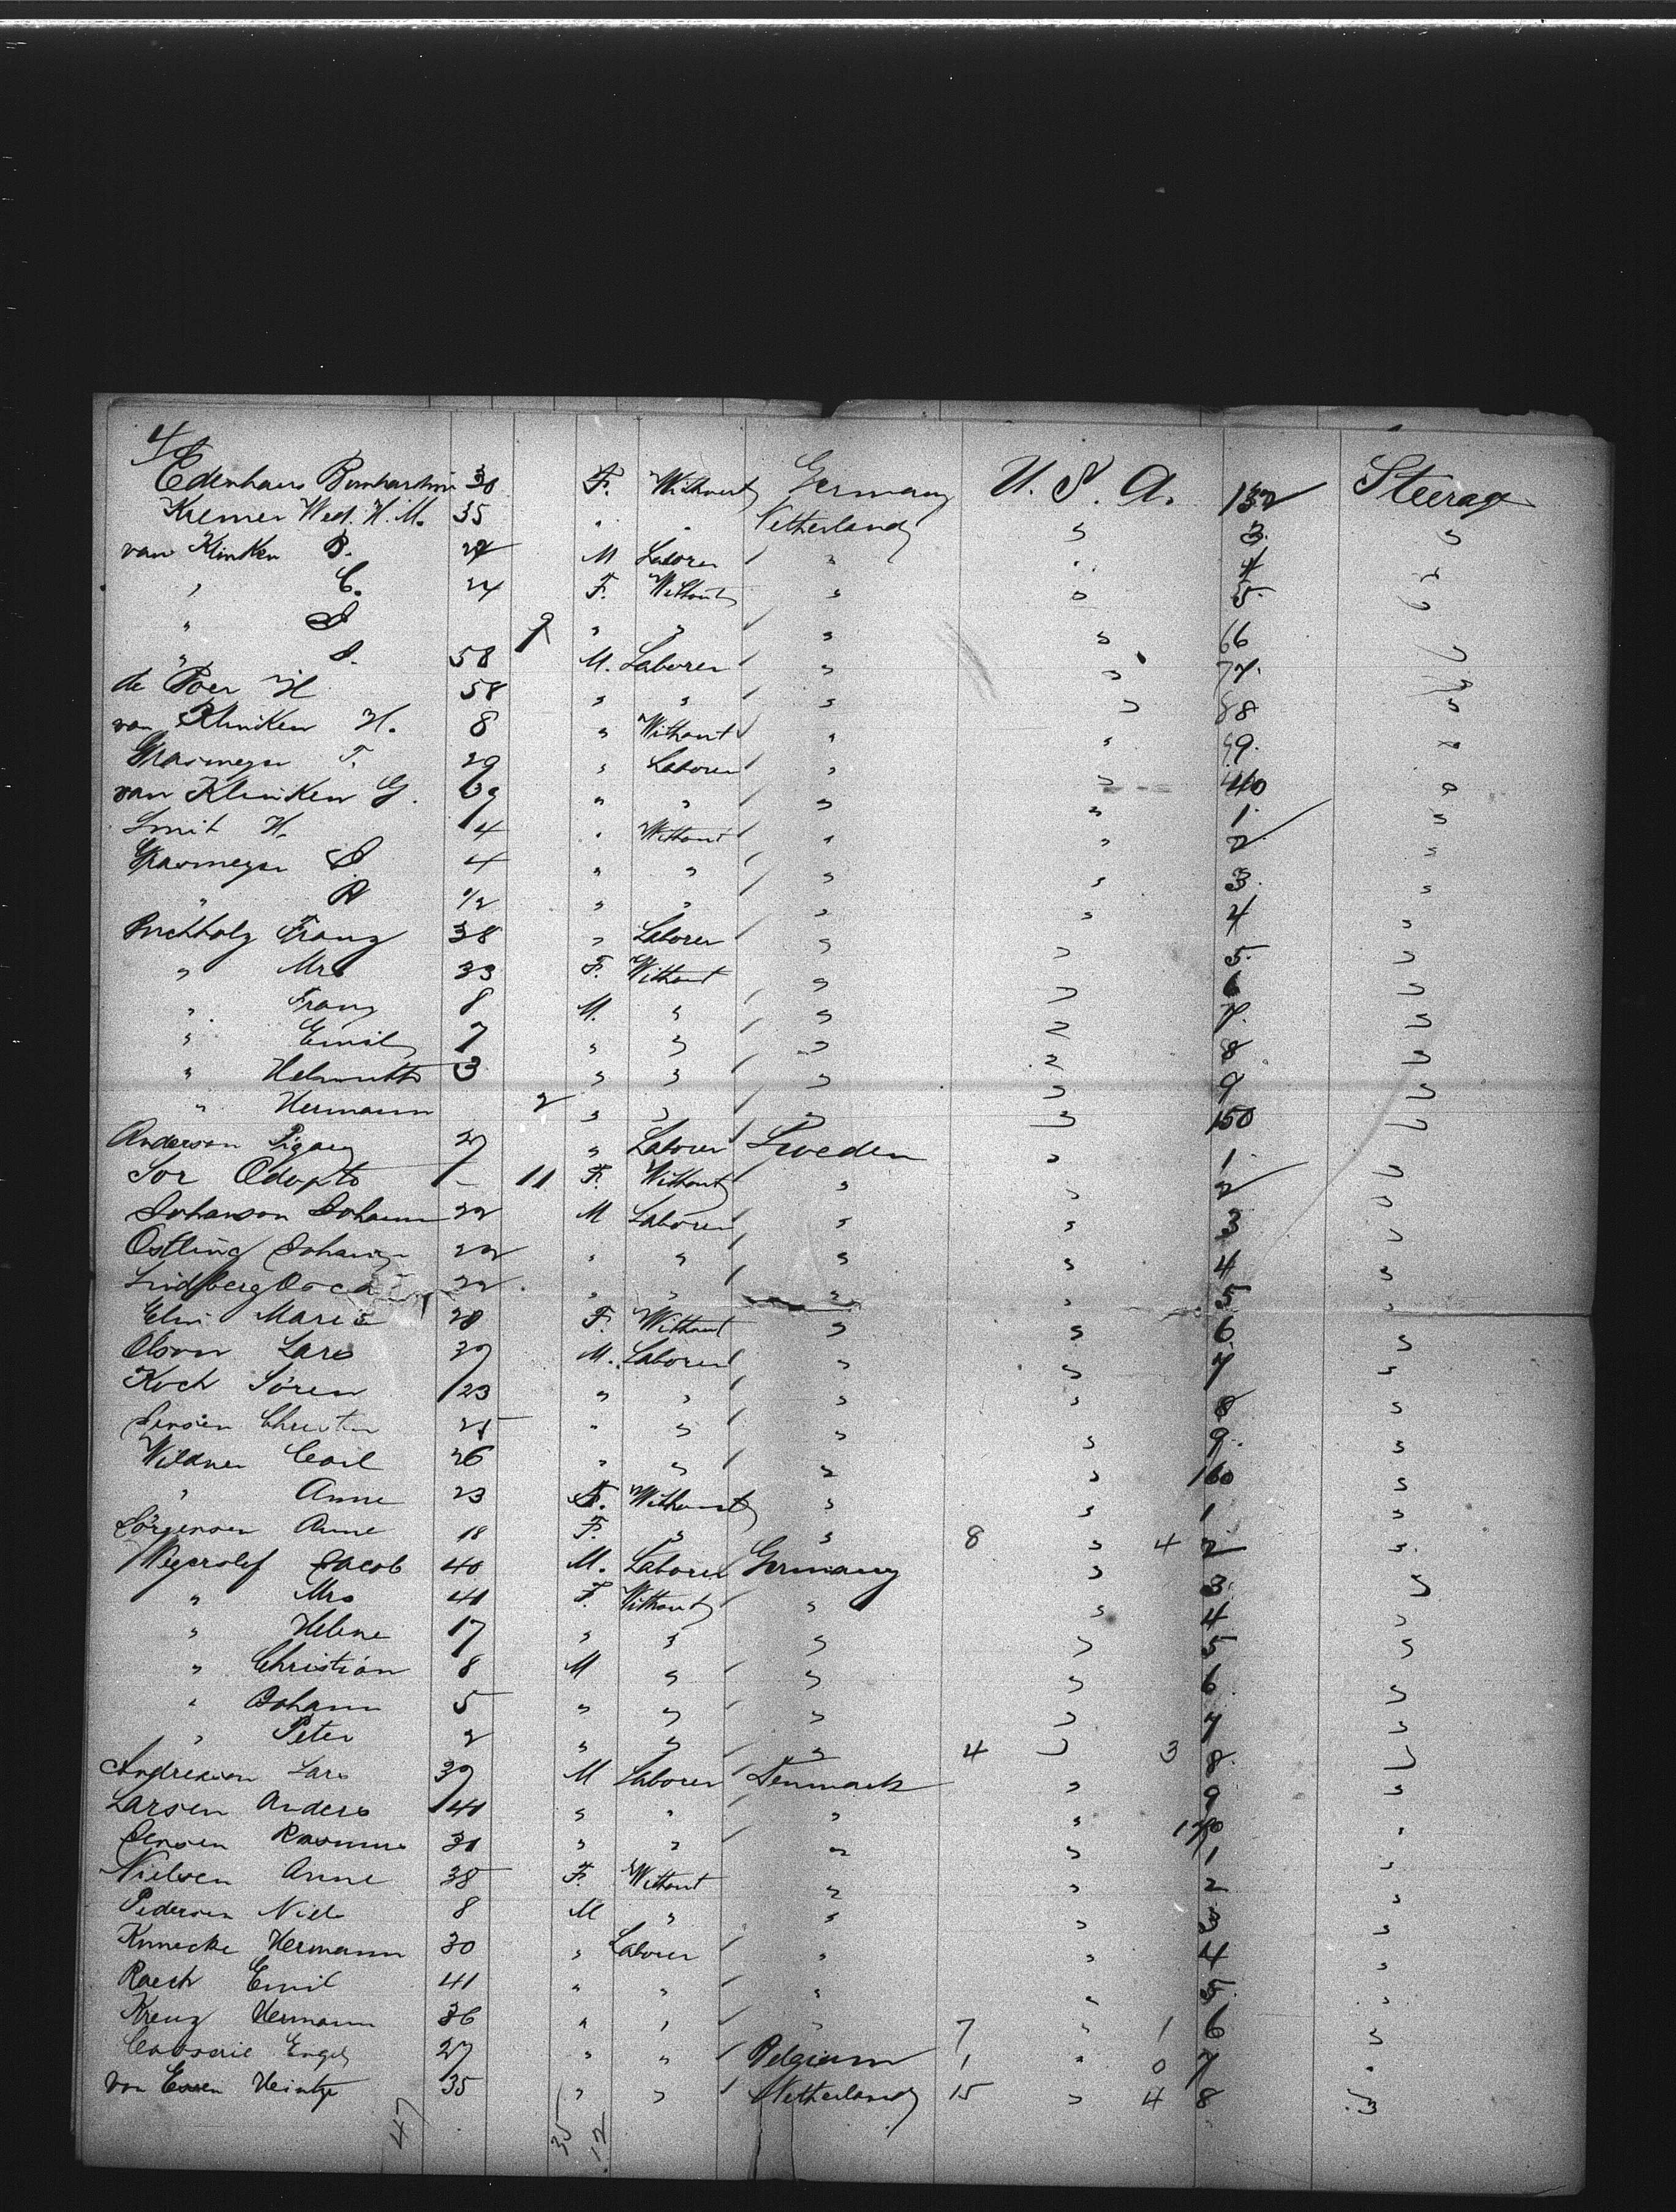 4
Edenhaus Bernhardine 30 F. Without Germany U. S. A. 132 Steerage
Kremer Wed. H. M. 35 " " Netherland " 3. "
van Klinken B. 27 M Laborer " " 4 "
" C. 24 F. Without " " 5. "
" S 9 " " " " 6 "
" S. 58 M. Laborer " " 7. "
de Boer H 58 " " " " 8 "
van Klinken H. 8 " Without " " 9. "
Grasmeyer F. 29 " Laborer " " 40 "
van Klinken G. 69 " " " " 1. "
Smit H. 4 " Without " " 2 "
Grasmeyer S 4 " " " " 3. "
" R 1/2 " " " " 4 "
Buchholz Franz 38 " Laborer " " 5. "
" Mrs 33 F. Without " " 6 "
" Franz 8 M. " " " 7. "
" Emil 7 " " " " 8 "
" Helmuth 3 " " " " 9 "
" Hermann 2 " " " " 150 "
Anderson 27 " Laborer Sweden " 1. "
Sor 11 F. Without " " 2 "
Johanson Johann 22 M Laborer " " 3 "
Ostling Johann 22 " " " " 4 "
Lindberg 22 " " " " 5 "
Elin Maria 28 F. Without " " 6. "
Olson Lars 39 M. Laborer " " 7 "
Koch Sören 23 " " " " 8 "
Jensen Christen 25 " " " " 9. "
Wildner Carl 26 " " " " 160 "
" Anne 23 F. Without " " 1 "
Jörgensen Anne 18 F. " " 8 " 4 2 "
Wegerslef Jacob 40 M. Laborer Germany " 3. "
" Mrs 41 F. Without " " 4 "
" Helene 17 " " " " 5 "
" Christian 8 M " " " 6 "
" Johann 5 " " " " 7 "
" Peter 2 " " " 4 " 3 8 "
Andreasen Lars 39 M Laborer Denmark " 9 "
Larsen Anders 41 " " " " 170 "
Jensen Rasmus 31 " " " " 1 "
Nielsen Anne 38 F. Without " " 2 "
Pedersen Niels 8 M " " " 3 "
Knnecke Hermann 30 " Laborer " " 4 "
Raesch Emil 41 " " " " 5. "
Kreuz Hermann 36 " " " 7 " 1 6 "
Engel 27 " " Belgium 1 " 0 7 "
von Essen Heintze 35 " " Netherland 15 " 4 8 "
47 35 12